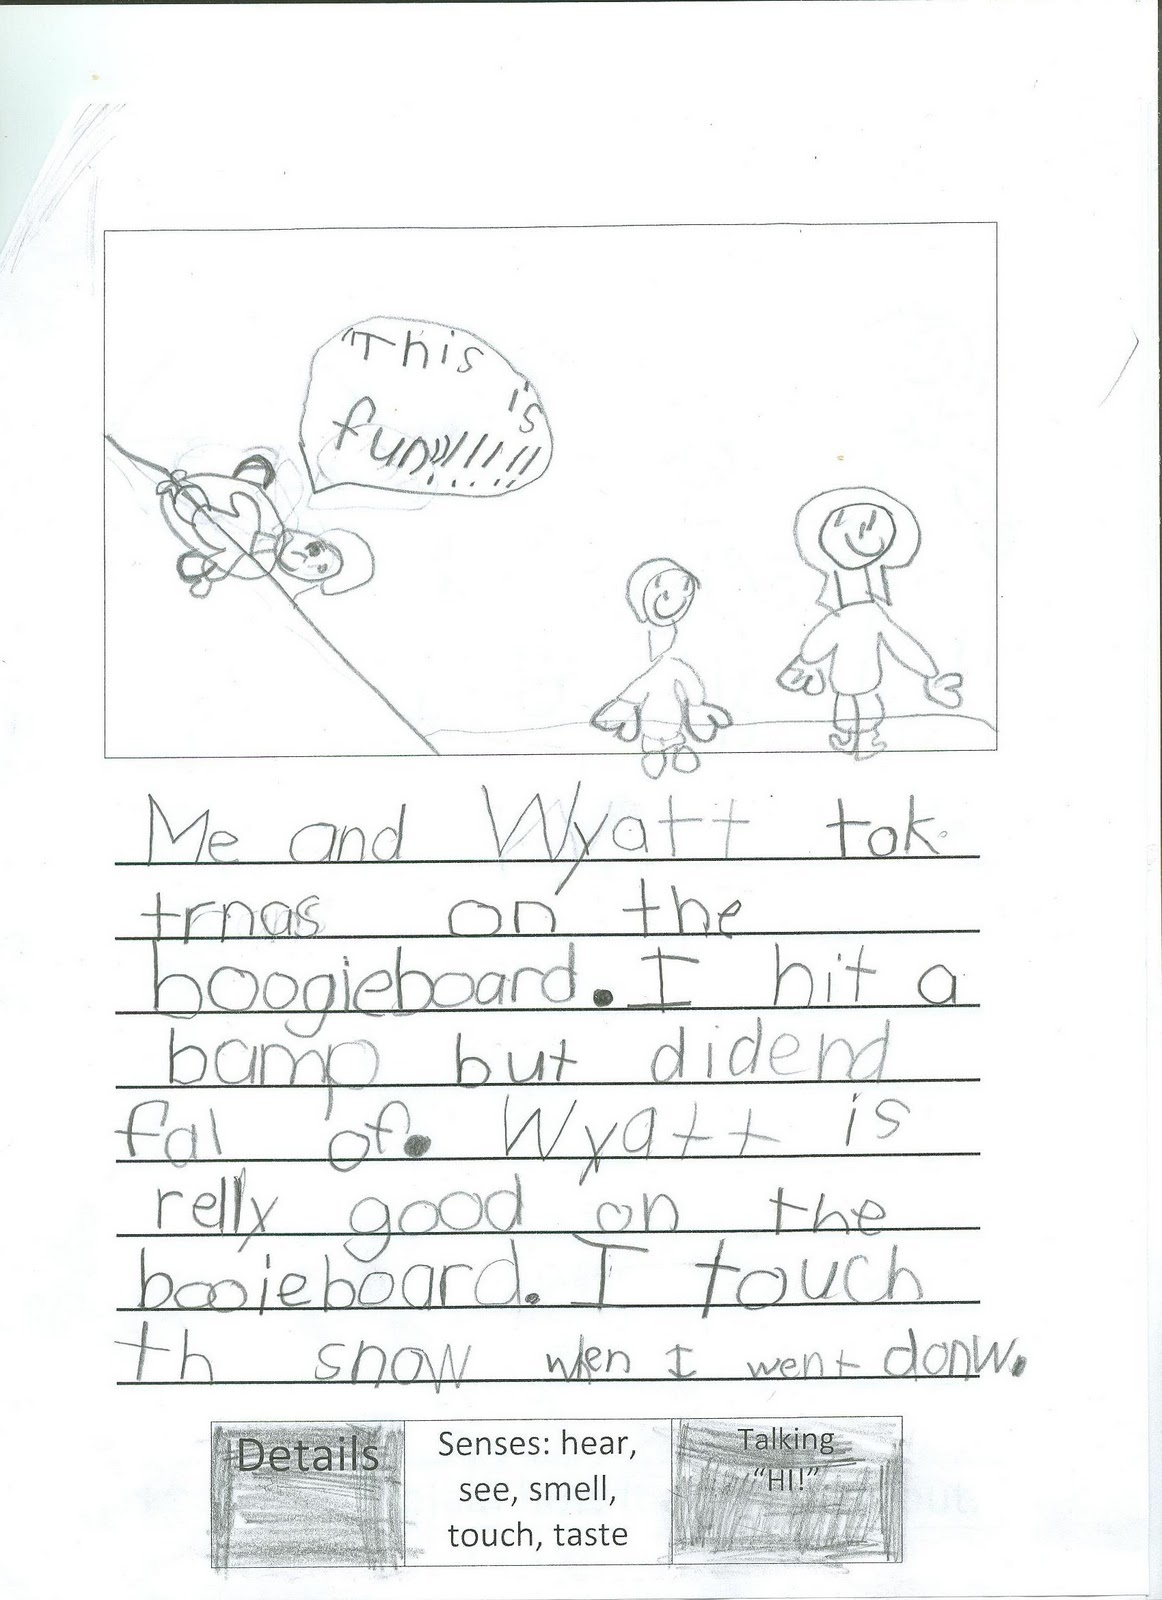 "This
is
fun!!!!!!!!
Me and Wyatt tok
trnas on the
boogieboard. I hit a
bamp but didend
fal of. Wyatt is
relly good on the
booieboard. I touch
th snow when I went donw.
Details
Senses: hear,
see, smell,
touch, taste
Talking
“HI!”